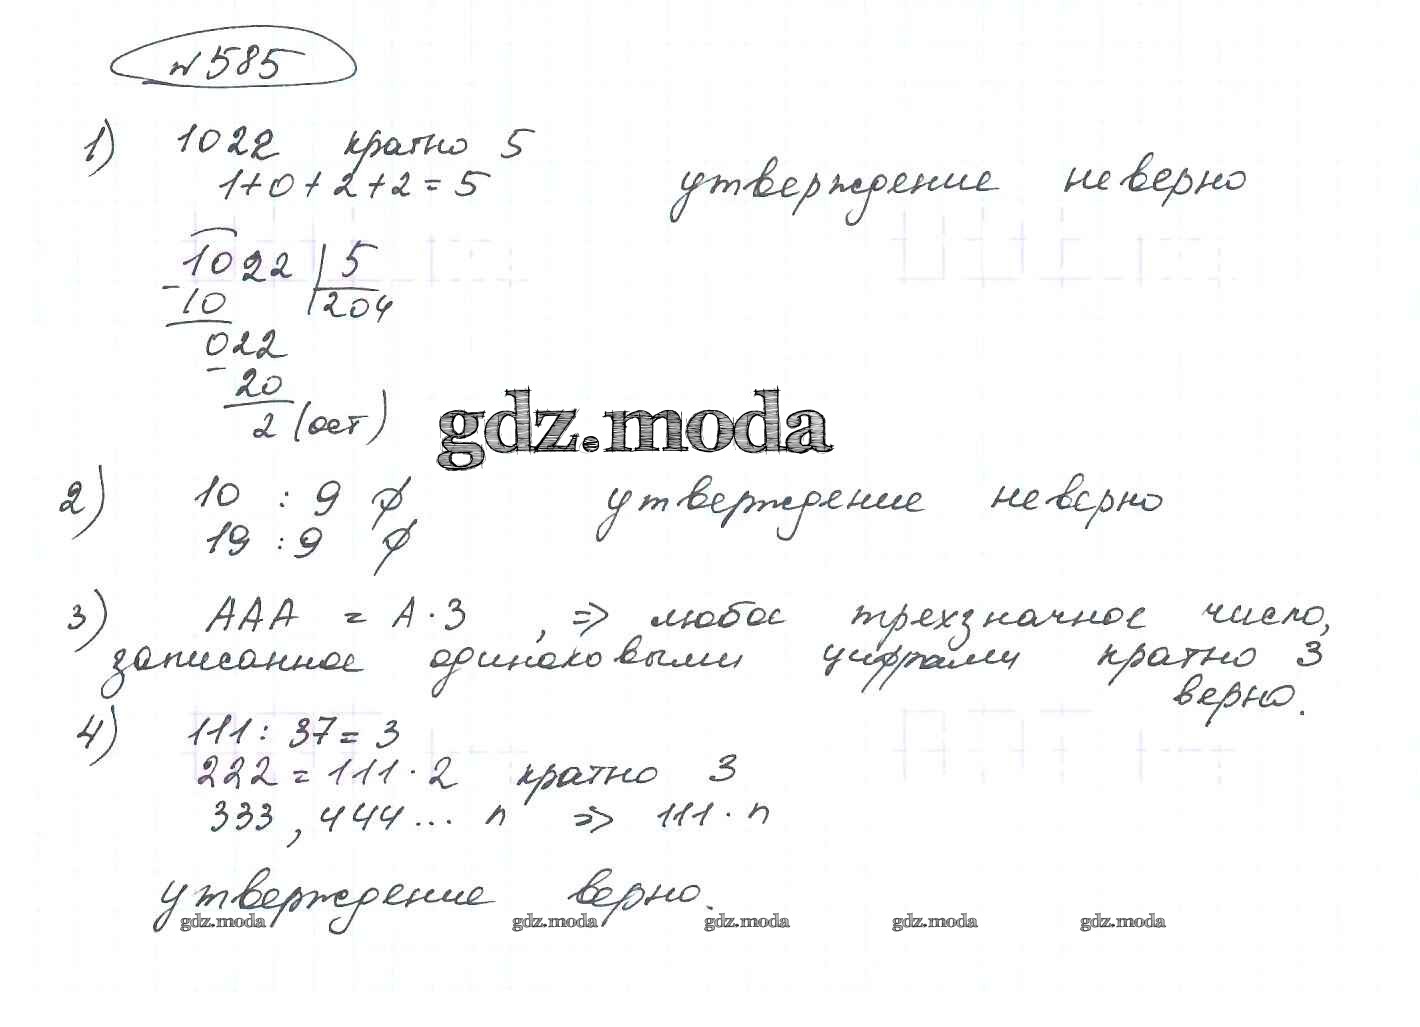 № 585
1) 1022 кратно 5
1+0+2+2=5 утверждение неверно
1022 | 5
-10 | 204
022
- 20
2 (ост)
gdz.moda
2) 10 : 9 ∅ утверждение неверно
19 : 9 ∅
3) AAA = A·3 , => любое трехзначное число,
записанное одинаковыми цифрами кратно 3
верно.
4) 111 : 37 = 3
222 = 111·2 кратно 3
333, 444 ... n => 111·n
утверждение верно.
gdz.moda gdz.moda gdz.moda gdz.moda gdz.moda